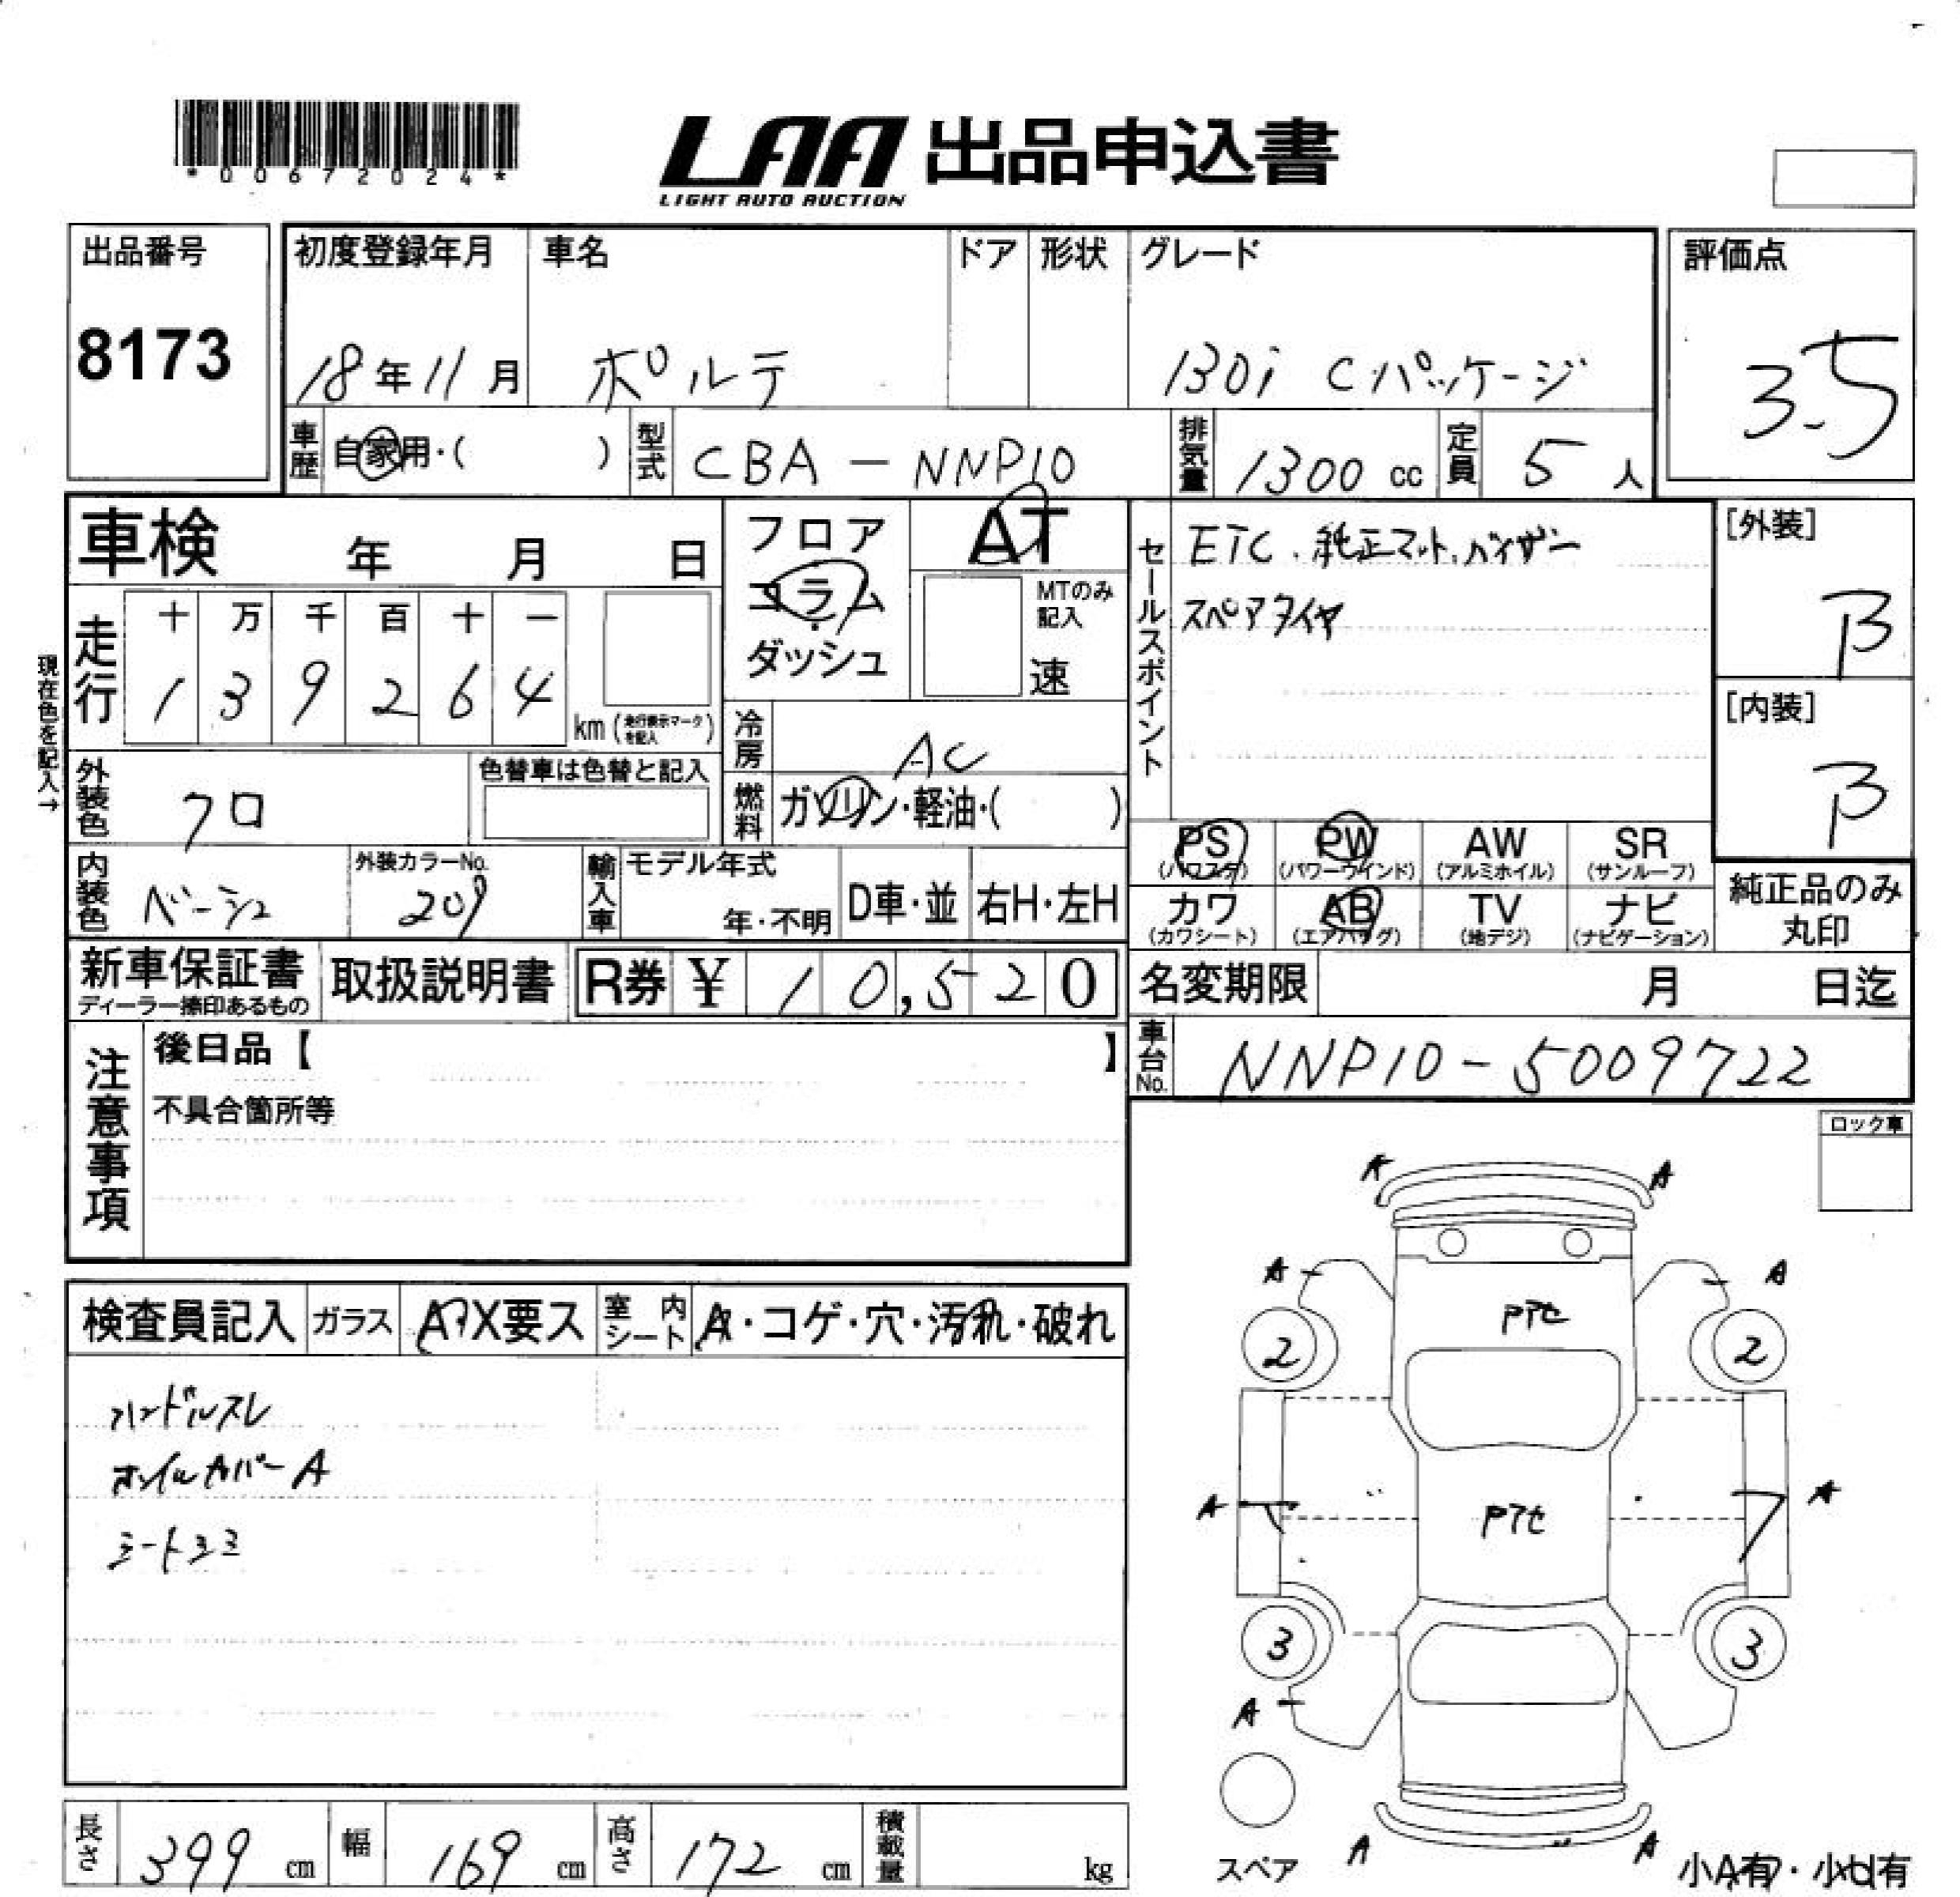 *00672024*
LAA 出品申込書
LIGHT AUTO AUCTION
出品番号
8173
初度登録年月
18年11月
車名
ポルテ
ドア
形状
グレード
130i Cパッケージ
評価点
3.5
車歴
自家用・( )
型式
CBA-NNP10
排気量
1300 cc
定員
5 人
車検 年 月 日
フロア
コラム
ダッシュ
AT
MTのみ
記入
速
セールスポイント
ETC、純正マット、バイザー
スペアタイヤ
[外装]
B
[内装]
B
現在色を記入→
走行
十 万 千 百 十 一
1 3 9 2 6 4
km (走行表示マークを記入)
冷房
AC
外装色
クロ
色替車は色替と記入
燃料
ガソリン・軽油・( )
PS
(パワステ)
PW
(パワーウインド)
AW
(アルミホイル)
SR
(サンルーフ)
カワ
(カワシート)
AB
(エアバッグ)
TV
(地デジ)
ナビ
(ナビゲーション)
純正品のみ
丸印
内装色
ベージュ
外装カラーNo.
209
輸入車
モデル年式
年・不明
D車・並
右H・左H
新車保証書
ディーラー捺印あるもの
取扱説明書
R券 ¥ 10,520
名変期限 月 日迄
車台No.
NNP10-5009722
注意事項
後日品【 】
不具合箇所等
ロック車
検査員記入
ガラス
A・X要ス
室内
シート
A・コゲ・穴・汚れ・破れ
ハンドルスレ
ホイルカバーA
シートシミ
A A
A A
Pアセ
2 2
A A
Pアセ
3 3
A
A A
スペア
小A有・小U有
長さ
399 cm
幅
169 cm
高さ
172 cm
積載量
kg